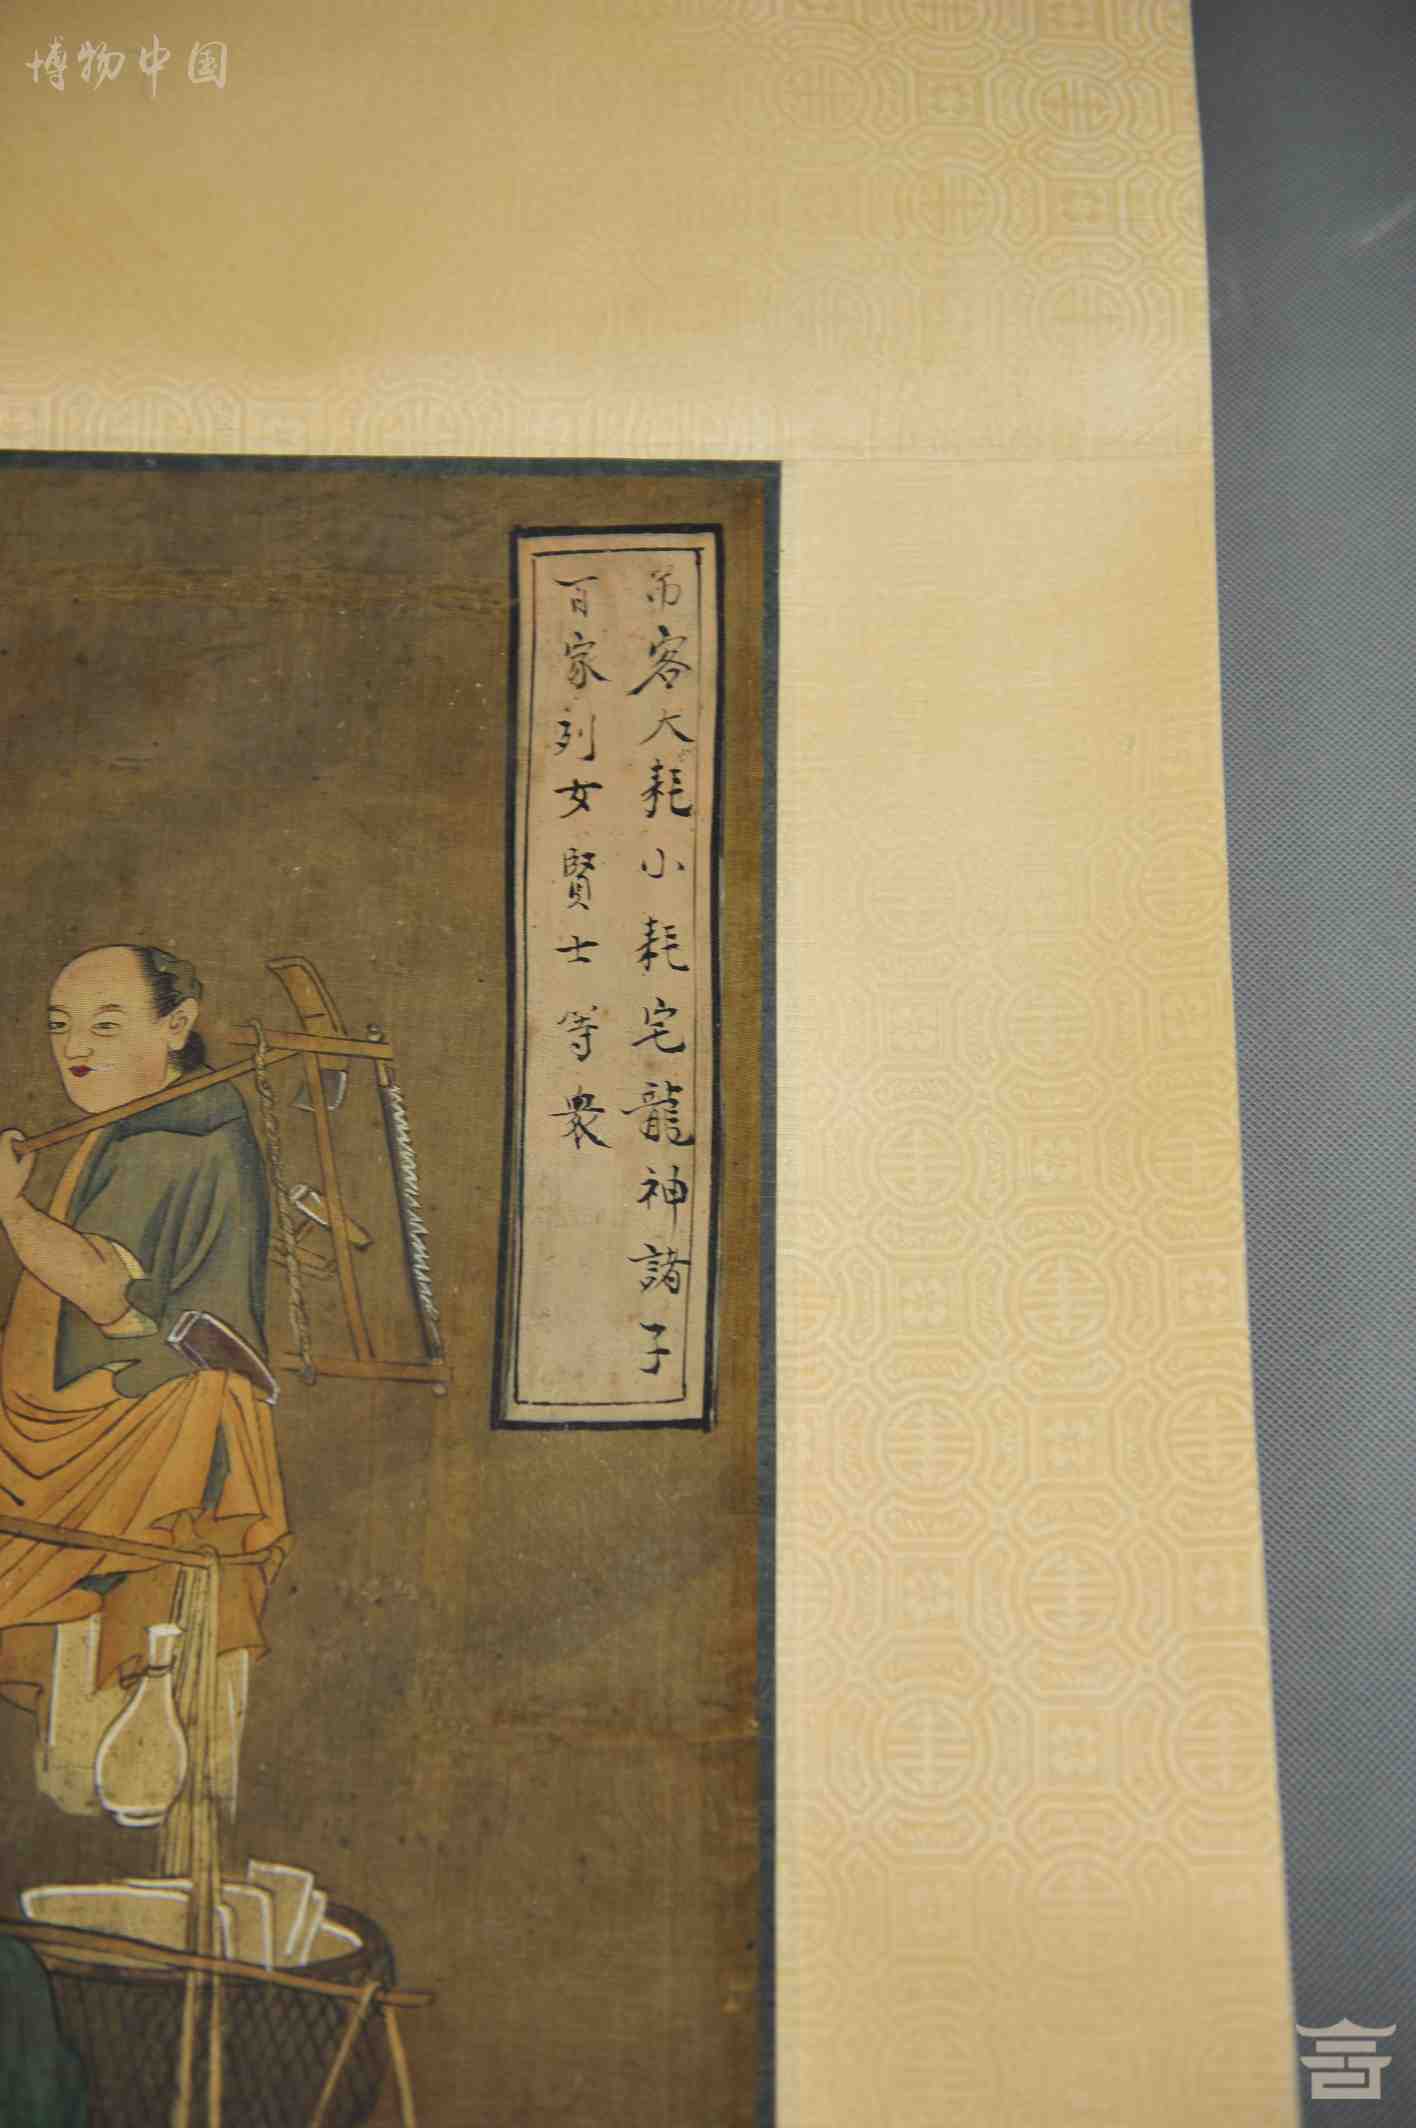 博物中国
吊客大耗小耗宅龍神諸子
百家列女賢士等衆